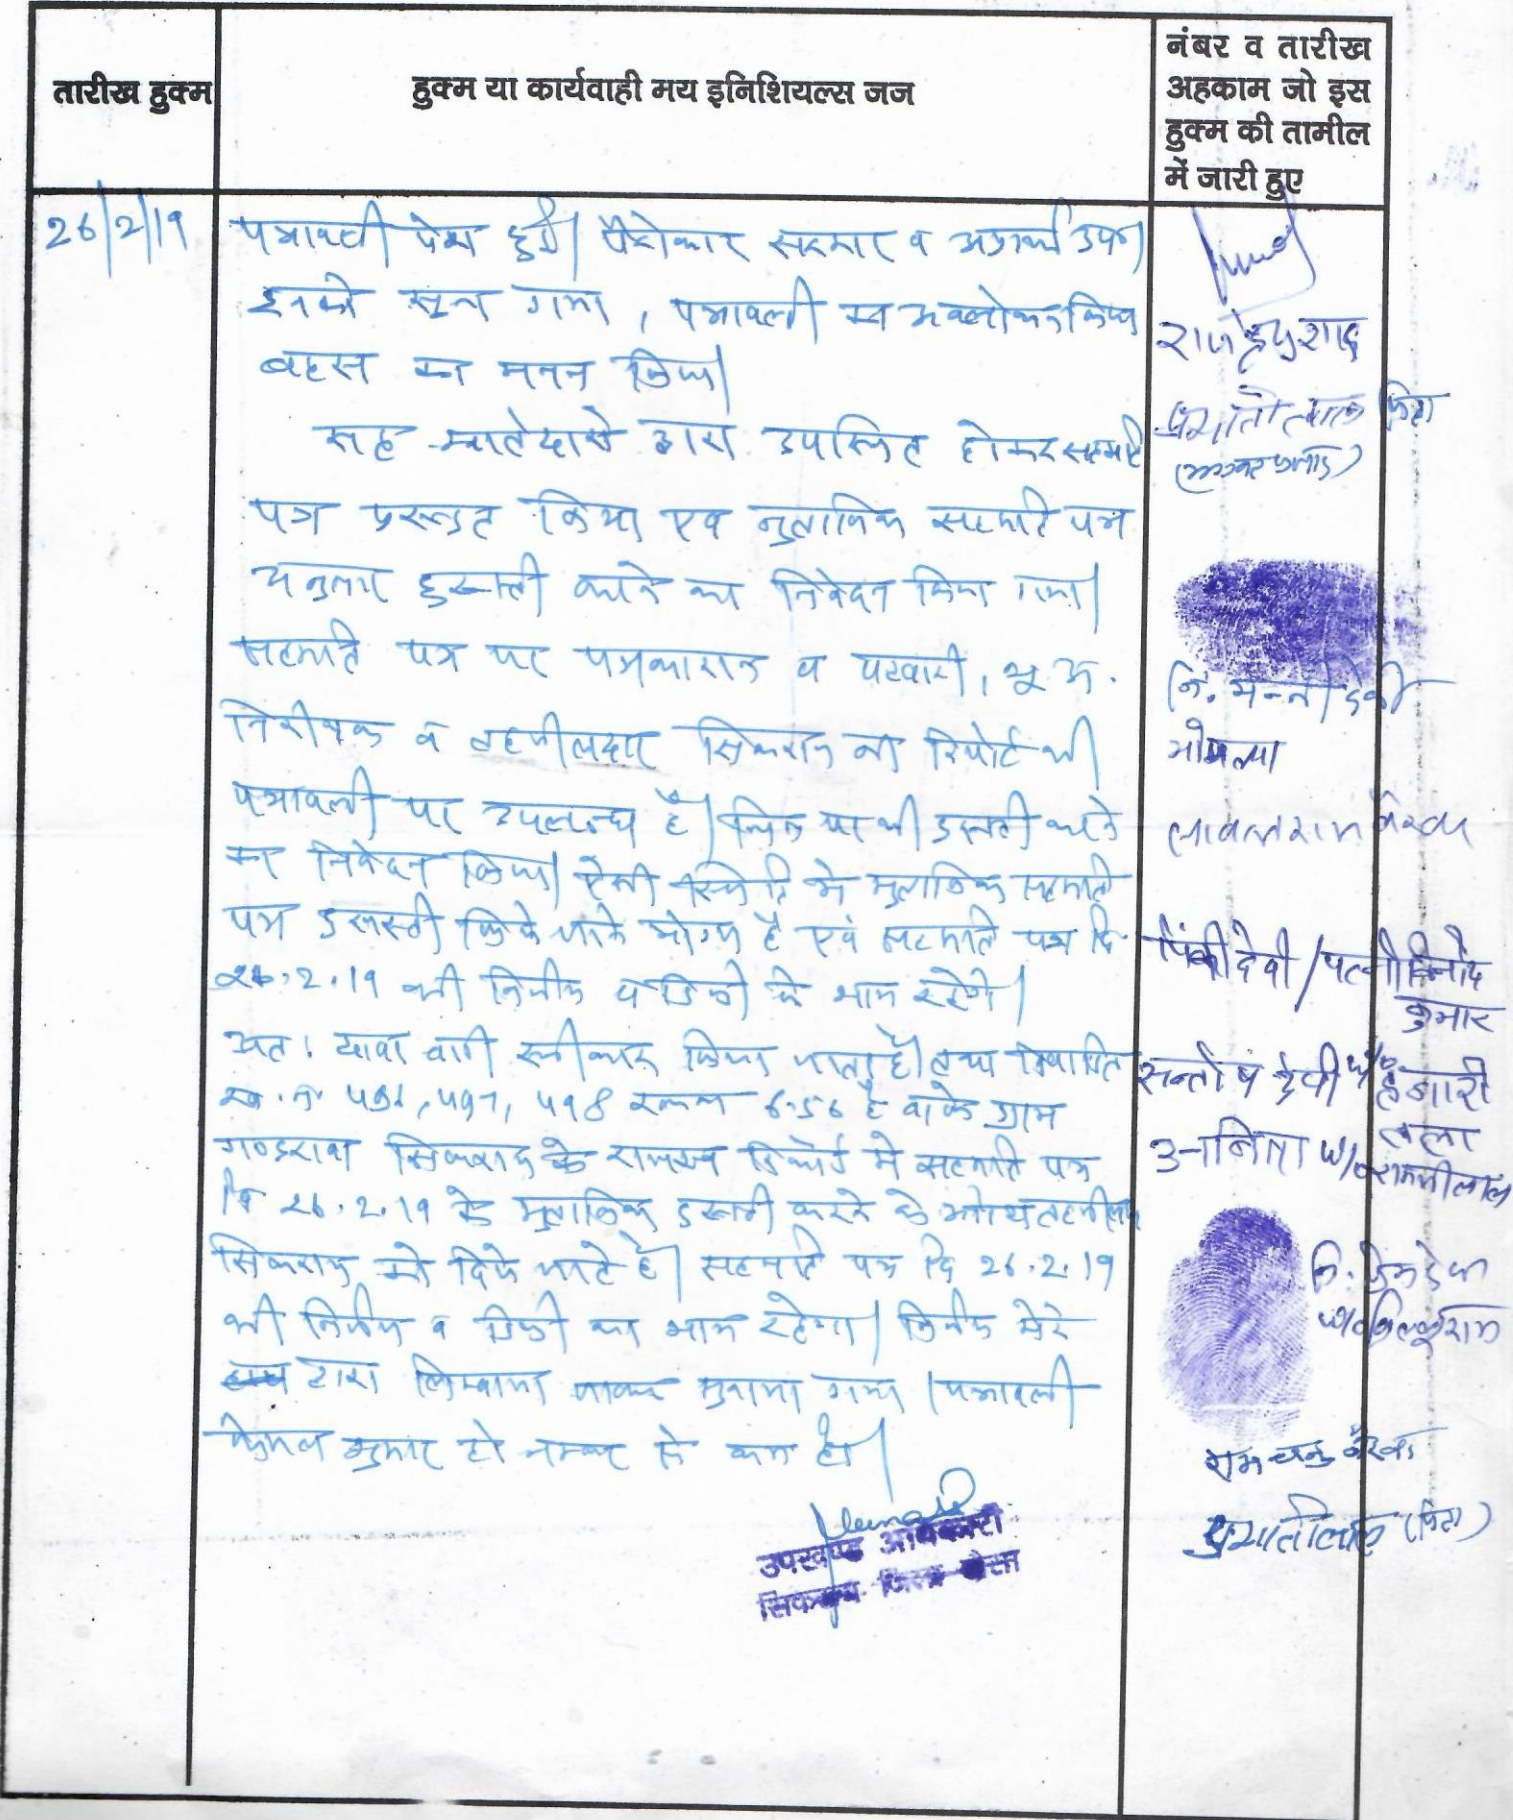 तारीख हुक्म
हुक्म या कार्यवाही मय इनिशियल्स जज
नंबर व तारीख
अहकाम जो इस
हुक्म की तामील
में जारी हुए
26/2/19
पत्रावली पेश हुई। पैरोकार सरकार व
इनको सुना गया, पत्रावली का अवलोकन किया
बहस का मनन किया।
सह खातेदारो द्वारा उपस्थित होकर सहमति
पत्र प्रस्तुत किया एवं मुताबिक सहमति पत्र
अनुसार दुरूस्ती करने का निवेदन किया गया।
सहमति पत्र पर पत्रकारान व पटवारी, भू.अ.
निरीक्षक व तहसीलदार सिकराय की रिपोर्ट भी
पत्रावली पर उपलब्ध है। दुरूस्ती करने
का निवेदन किया। ऐसी स्थिति में मुताबिक सहमति
पत्र दुरूस्ती किये जाने योग्य है एवं सहमति पत्र दि.
26.2.19 भी निर्णय व डिक्री के भाग रहेगे।
अतः दावा वादी स्वीकार किया जाता है। तथा विवादित
ख.नं. 497, 498 रकबा 6.56 है वाके ग्राम
सिकराय के राजस्व रिकॉर्ड में सहमति पत्र
दि 26.2.19 के मुताबिक दुरूस्ती करने के
सिकराय को दिये जाते है। सहमति पत्र दि 26.2.19
भी निर्णय व डिक्री का भाग रहेगा। निर्णय मेरे
द्वारा लिखवाया जाकर सुनाया गया। पत्रावली
फैसल शुमार हो नम्बर से कम हो।
उपखण्ड अधिकारी
सिकराय जिला दौसा
राजेन्द्र प्रशाद
प्रभातीलाल
नि.
पिंकी देवी / पत्नी विनोद
कुमार
सन्तोष देवी w/o हजारी
लाल
अनिता w/o रामजीलाल
नि. देवी
रामचन्द्र बैरवा
प्रभातीलाल (पिता)